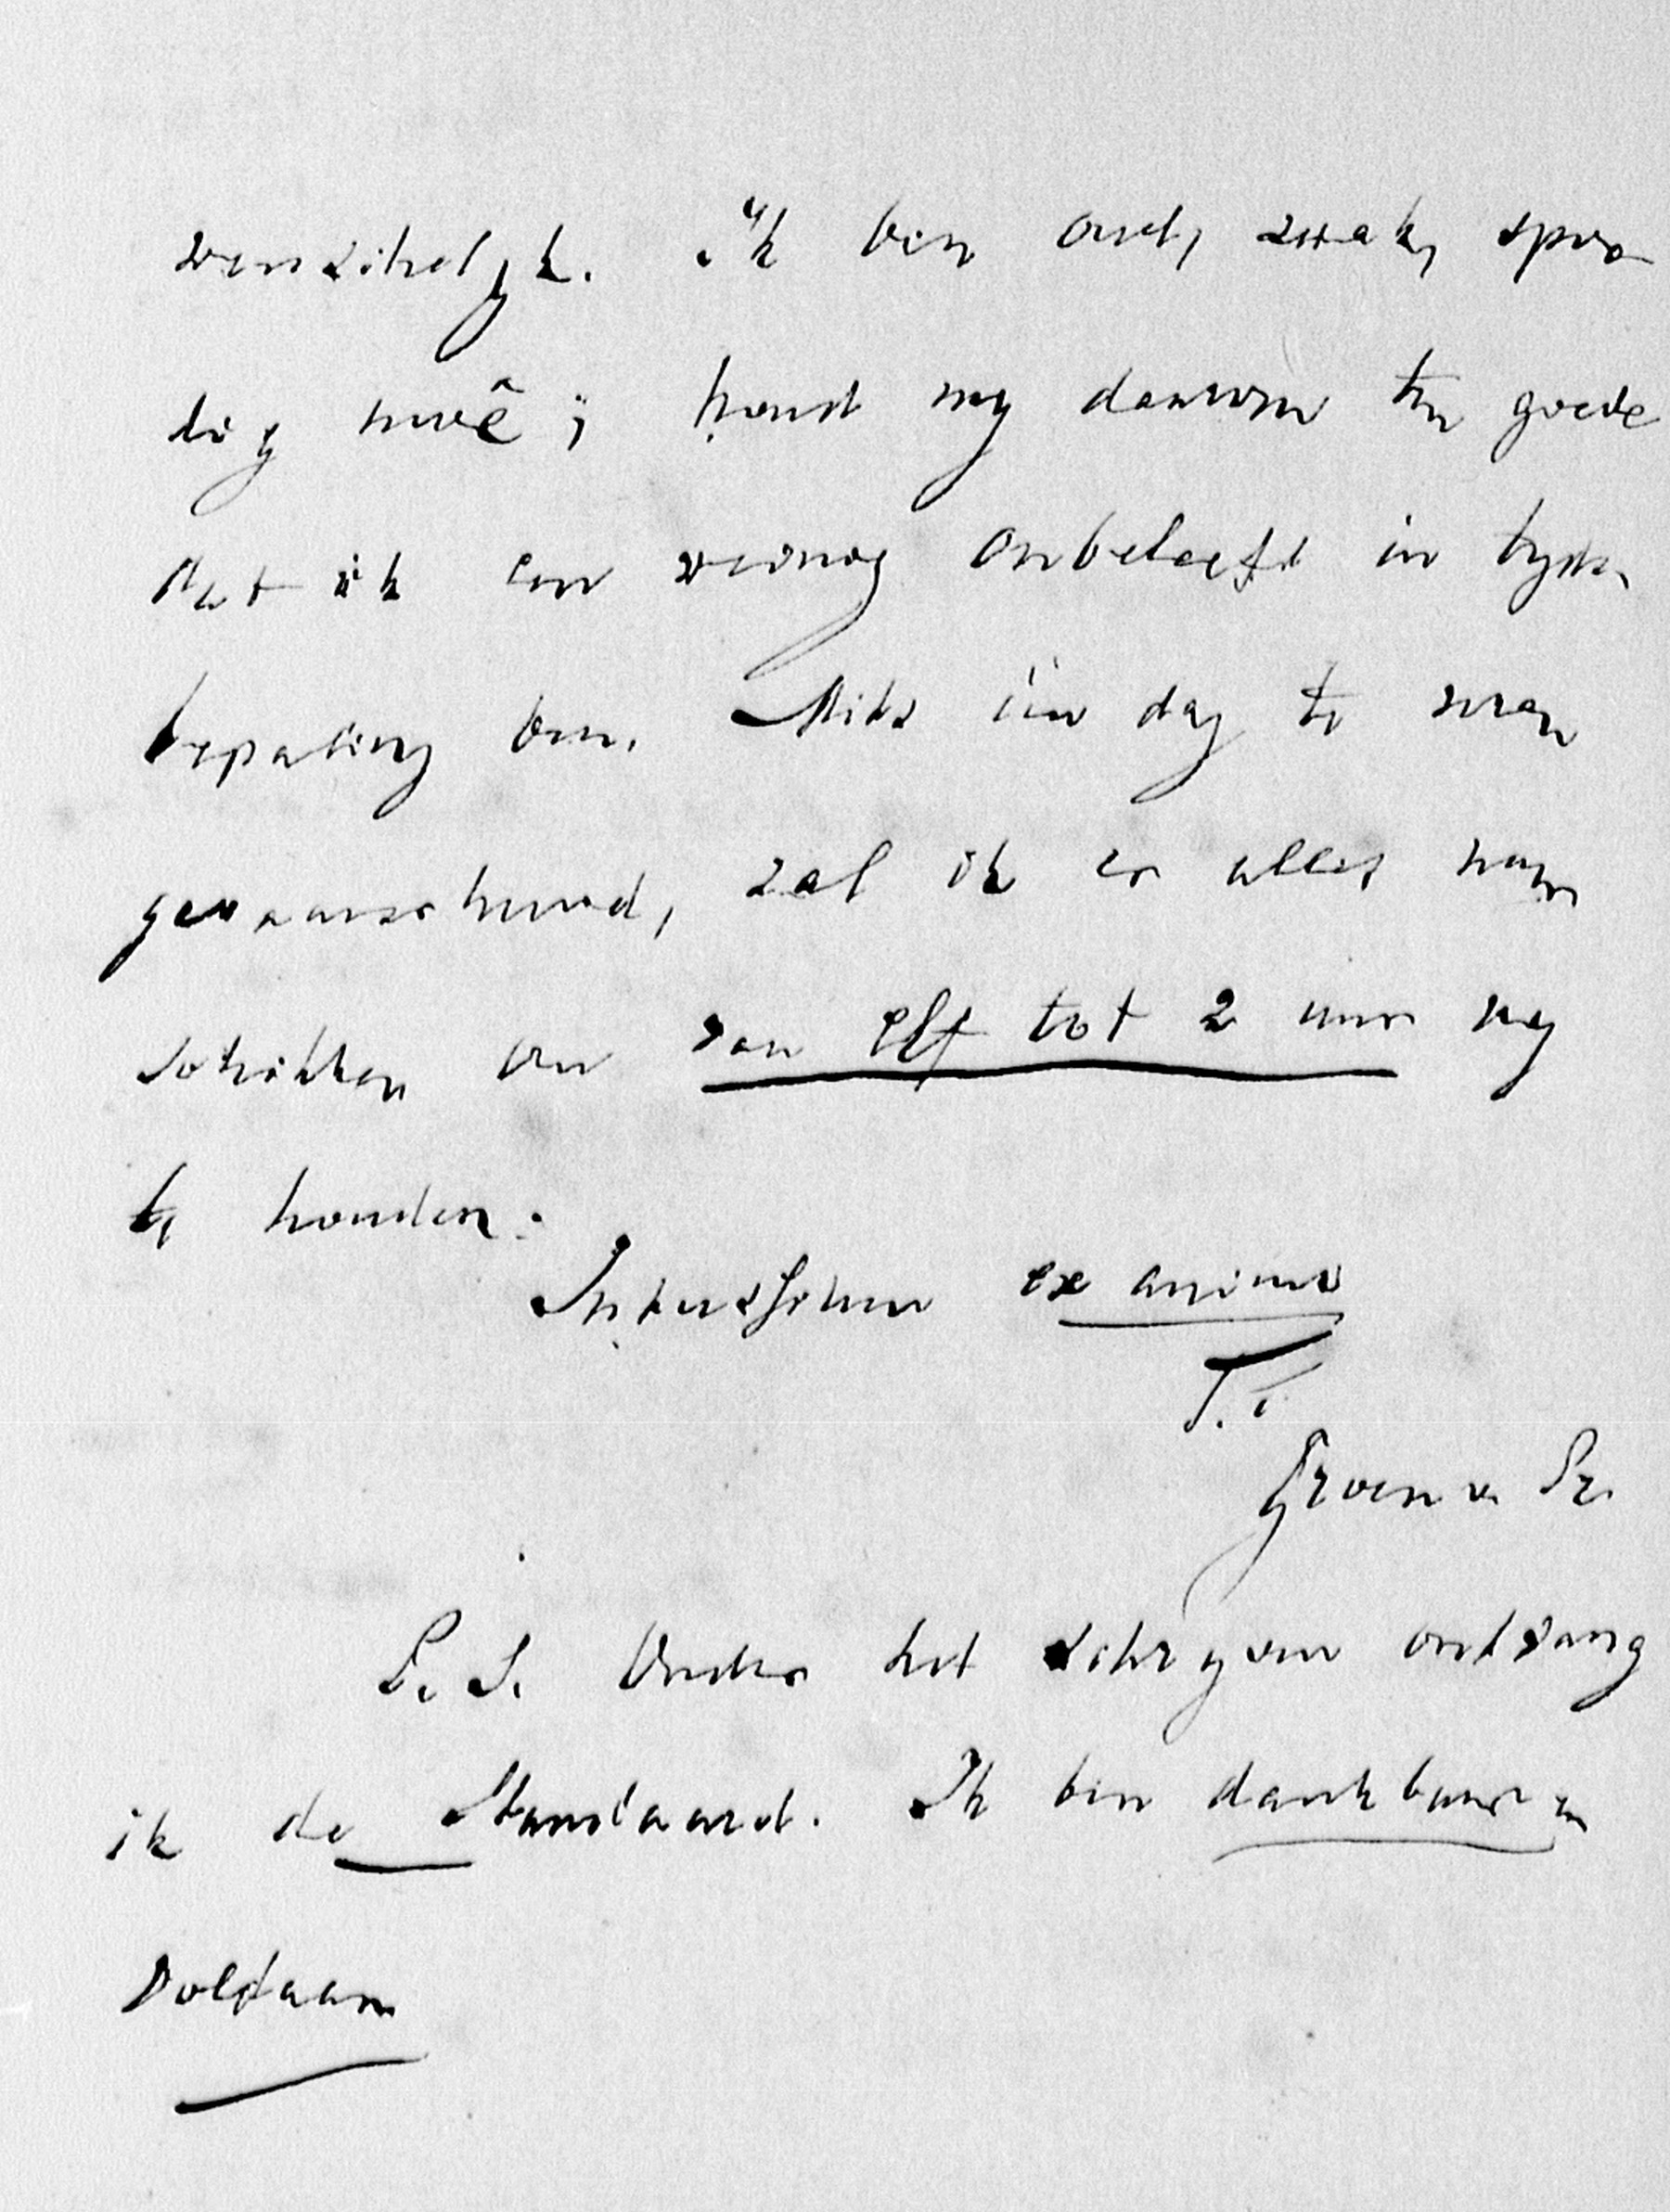 wenschelyk. Ik ben oud, zwak, spoe
dig moê; houd my daarom ten goede
dat ik een weinig onbeleefd in tyds
bepaling ben. Mits één dag te voren
gewaarschuwd, zal ik er alles naar
schikken om van elf tot 2 uur vry
te houden.
Intusschen ex animo
T.T.
Groen v. Pr.
P.S. Onder het schryven ontvang
ik de Standaard. Ik ben dankbaar en
voldaan